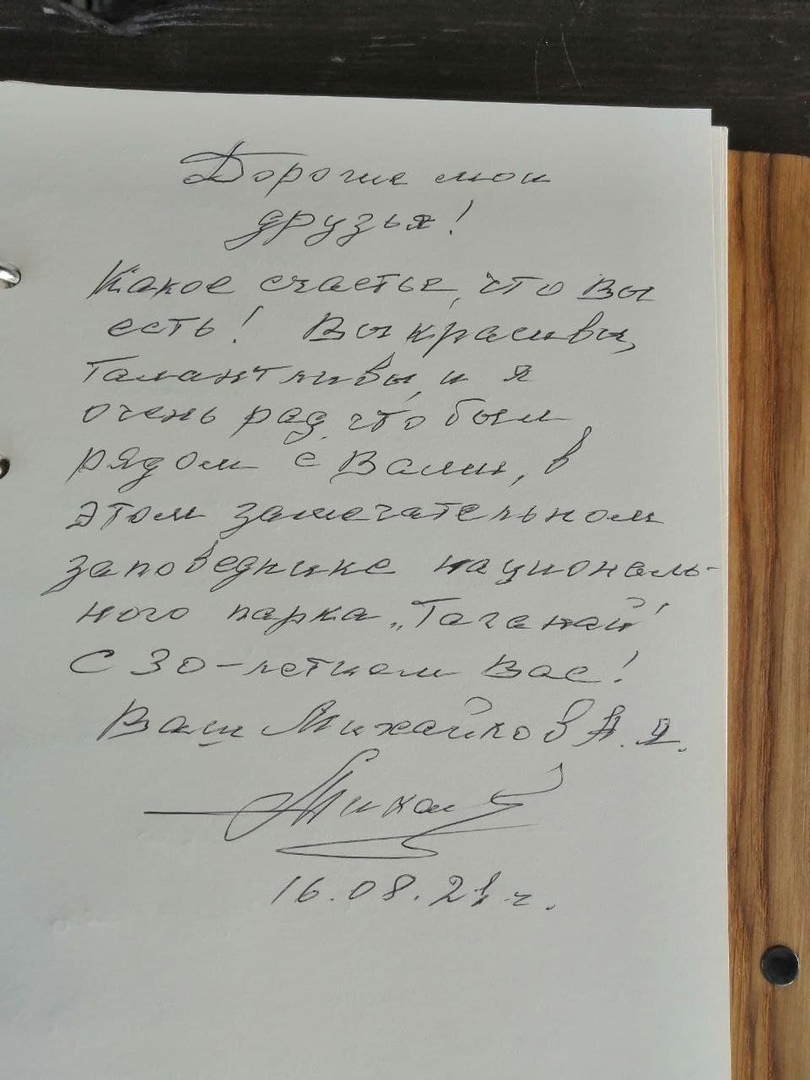 Дорогие мои
друзья!
Какое счастье, что Вы
есть! Вы красивы,
талантливы, и я
очень рад, что был
рядом с Вами, в
этом замечательном
заповеднике националь-
ного парка „Таганай"
С 30-летием Вас!
Ваш Михайлов А. Я.
16.08.21 г.